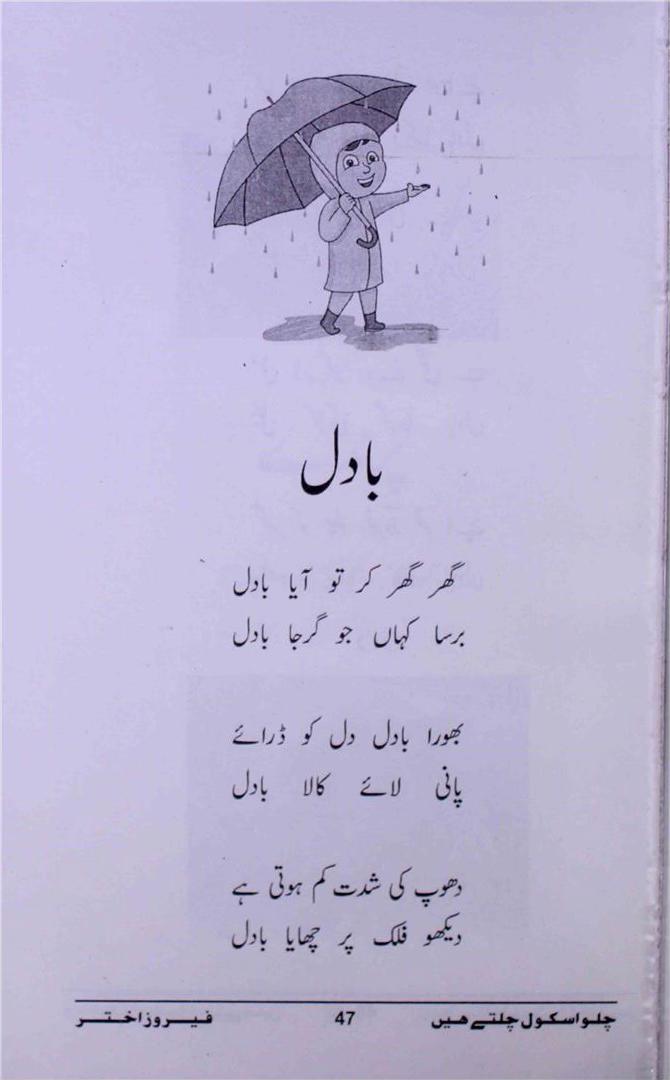 بادل
گھر گھر کر تو آیا بادل
برسا کہاں جو گرجا بادل
بھورا بادل دل کو ڈرائے
پانی لائے کالا بادل
دھوپ کی شدت کم ہوتی ہے
دیکھو فلک پر چھایا بادل
چلو اسکول چلتے ھیں 47 فیروز اختر